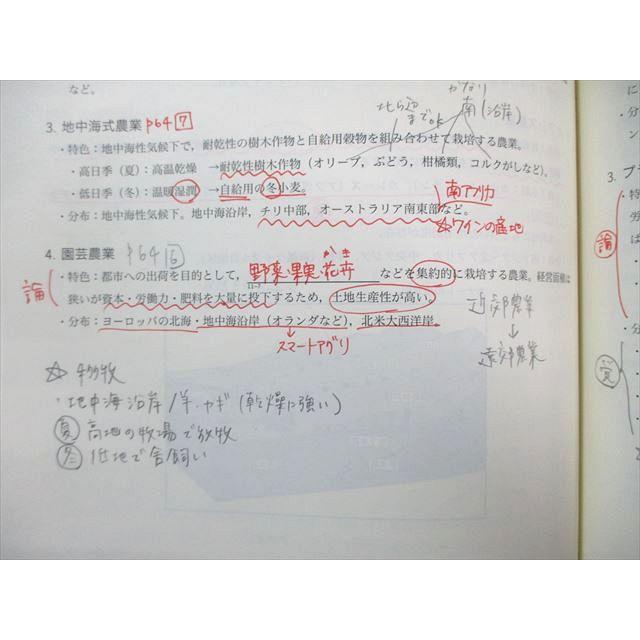 など。
北ら辺
までok
南(沿岸)
3. 地中海式農業 p64 7
・特色:地中海性気候下で,耐乾性の樹木作物と自給用穀物を組み合わせて栽培する農業。
・高日季(夏):高温乾燥 →耐乾性樹木作物(オリーブ,ぶどう,柑橘類,コルクがしなど)。
・低日季(冬):温暖湿潤 →自給用の冬小麦。
南アフリカ
・分布:地中海性気候下。地中海沿岸,チリ中部,オーストラリア南東部など。
☆ワインの産地
4. 園芸農業 p64 6
かき
論
・特色:都市への出荷を目的として,野菜・果実・花卉などを集約的に栽培する農業。経営面積は
狭いが資本・労働力・肥料を大量に投下するため,土地生産性が高い。
近郊農業
↓
遠郊農業
・分布:ヨーロッパの北海・地中海沿岸(オランダなど),北米大西洋岸。
スマートアグリ
☆ 移牧
・地中海沿岸/羊・ヤギ(乾燥に強い)
夏 高地の牧場で放牧
冬 低地で舎飼い
3. プ
論